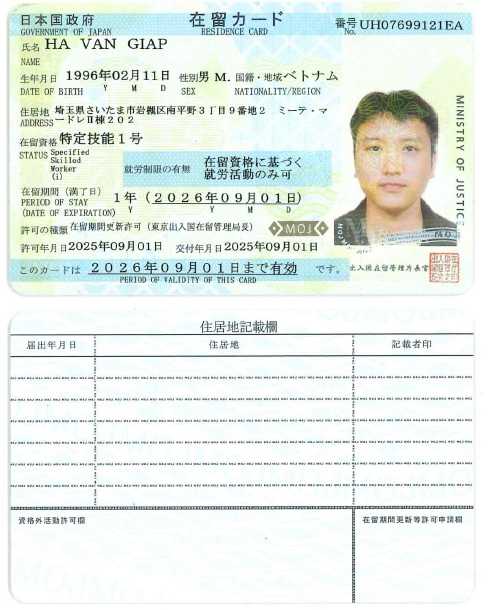 日本国政府 在留カード 番号 UH07699121EA
GOVERNMENT OF JAPAN RESIDENCE CARD No.
氏名 HA VAN GIAP
NAME
生年月日 1996年02月11日 性別 男 M. 国籍・地域 ベトナム
DATE OF BIRTH Y M D SEX NATIONALITY/REGION
住居地 埼玉県さいたま市岩槻区南平野3丁目9番地2 ミーテ・マ
ADDRESS ードレⅡ棟202
在留資格 特定技能1号
STATUS Specified
Skilled
Worker
(i)
就労制限の有無 在留資格に基づく
就労活動のみ可
在留期間(満了日) 1年(2026年09月01日)
PERIOD OF STAY
(DATE OF EXPIRATION) Y M D
許可の種類 在留期間更新許可(東京出入国在留管理局長)
MOJ
許可年月日 2025年09月01日 交付年月日 2025年09月01日
このカードは 2026年09月01日まで有効 です。
PERIOD OF VALIDITY OF THIS CARD
MINISTRY OF JUSTICE
出入国在留管理庁長官
住居地記載欄
届出年月日 住居地 記載者印
資格外活動許可欄 在留期間更新等許可申請欄